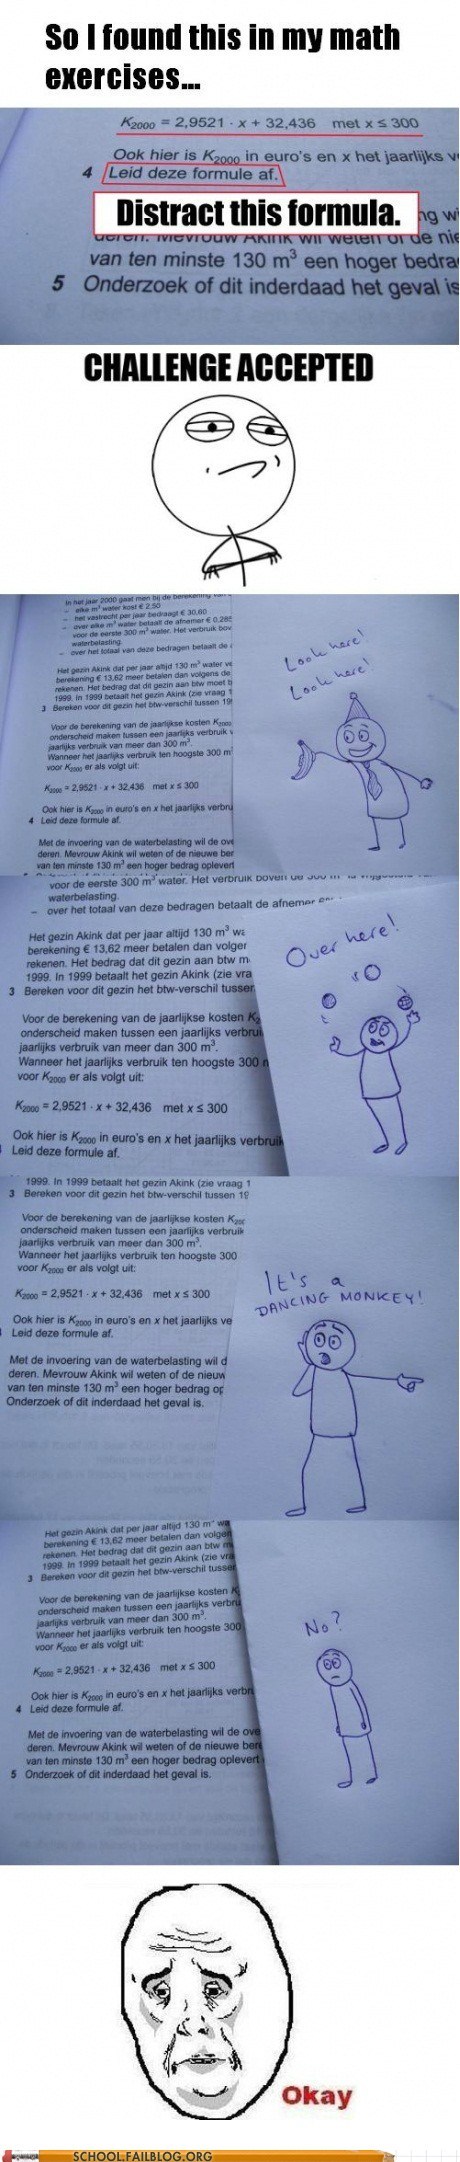 So I found this in my math
exercises...
K2000 = 2,9521 · x + 32,436 met x ≤ 300
Ook hier is K2000 in euro's en x het jaarlijks
4 Leid deze formule af.
Distract this formula.
van ten minste 130 m³ een hoger
5 Onderzoek of dit inderdaad het geval is
CHALLENGE ACCEPTED
In het jaar 2000 gaat men bij de
- elke m³ water kost € 2,50
- het vastrecht per jaar bedraagt € 30,60
- over elke m³ water betaalt de afnemer €
voor de eerste 300 m³ water. Het verbruik
waterbelasting.
- over het totaal van deze bedragen betaalt de
Het gezin Akink dat per jaar altijd 130 m³ water
berekening € 13,62 meer betalen dan volgens de
rekenen. Het bedrag dat dit gezin aan btw moet
1999. In 1999 betaalt het gezin Akink (zie vraag 1
3 Bereken voor dit gezin het btw-verschil tussen
Voor de berekening van de jaarlijkse kosten K2000
onderscheid maken tussen een jaarlijks verbruik
jaarlijks verbruik van meer dan 300 m³.
Wanneer het jaarlijks verbruik ten hoogste 300 m
voor K2000 er als volgt uit:
K2000 = 2,9521 · x + 32,436 met x ≤ 300
Ook hier is K2000 in euro's en x het jaarlijks
4 Leid deze formule af.
Met de invoering van de waterbelasting wil de
deren. Mevrouw Akink wil weten of de nieuwe
van ten minste 130 m³ een hoger bedrag oplevert
Look here!
Look here!
voor de eerste 300 m³ water. Het verbruik boven
waterbelasting.
- over het totaal van deze bedragen betaalt de afnemer
Het gezin Akink dat per jaar altijd 130 m³
berekening € 13,62 meer betalen dan
rekenen. Het bedrag dat dit gezin aan btw
1999. In 1999 betaalt het gezin Akink (zie
3 Bereken voor dit gezin het btw-verschil
Voor de berekening van de jaarlijkse kosten
onderscheid maken tussen een jaarlijks
jaarlijks verbruik van meer dan 300 m³.
Wanneer het jaarlijks verbruik ten hoogste 300
voor K2000 er als volgt uit:
K2000 = 2,9521 · x + 32,436 met x ≤ 300
Ook hier is K2000 in euro's en x het jaarlijks verbruik
Leid deze formule af.
Over here!
1999. In 1999 betaalt het gezin Akink (zie vraag 1
3 Bereken voor dit gezin het btw-verschil tussen
Voor de berekening van de jaarlijkse kosten
onderscheid maken tussen een jaarlijks verbruik
jaarlijks verbruik van meer dan 300 m³.
Wanneer het jaarlijks verbruik ten hoogste 300
voor K2000 er als volgt uit:
K2000 = 2,9521 · x + 32,436 met x ≤ 300
Ook hier is K2000 in euro's en x het jaarlijks
Leid deze formule af.
Met de invoering van de waterbelasting wil
deren. Mevrouw Akink wil weten of de
van ten minste 130 m³ een hoger bedrag
Onderzoek of dit inderdaad het geval is.
It's a
DANCING MONKEY!
Het gezin Akink dat per jaar altijd 130 m³
berekening € 13,62 meer betalen dan
rekenen. Het bedrag dat dit gezin aan btw
1999. In 1999 betaalt het gezin Akink (zie
3 Bereken voor dit gezin het btw-verschil
Voor de berekening van de jaarlijkse kosten
onderscheid maken tussen een jaarlijks
jaarlijks verbruik van meer dan 300 m³.
Wanneer het jaarlijks verbruik ten hoogste 300
voor K2000 er als volgt uit:
K2000 = 2,9521 · x + 32,436 met x ≤ 300
Ook hier is K2000 in euro's en x het jaarlijks
4 Leid deze formule af.
Met de invoering van de waterbelasting wil de
deren. Mevrouw Akink wil weten of de nieuwe
van ten minste 130 m³ een hoger bedrag oplevert
5 Onderzoek of dit inderdaad het geval is.
No?
Okay
SCHOOL.FAILBLOG.ORG